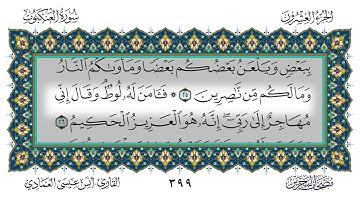 الجزء العشرون
سورة العنكبوت
بِبَعْضٍ وَيَلْعَنُ بَعْضُكُم بَعْضًا وَمَأْوَىٰكُمُ النَّارُ
وَمَا لَكُم مِّن نَّٰصِرِينَ ٢٥ ۞ فَـَٔامَنَ لَهُۥ لُوطٌ وَقَالَ إِنِّي
مُهَاجِرٌ إِلَىٰ رَبِّيٓ إِنَّهُۥ هُوَ الْعَزِيزُ الْحَكِيمُ ٢٦
مصحف البحرين
٣٩٩